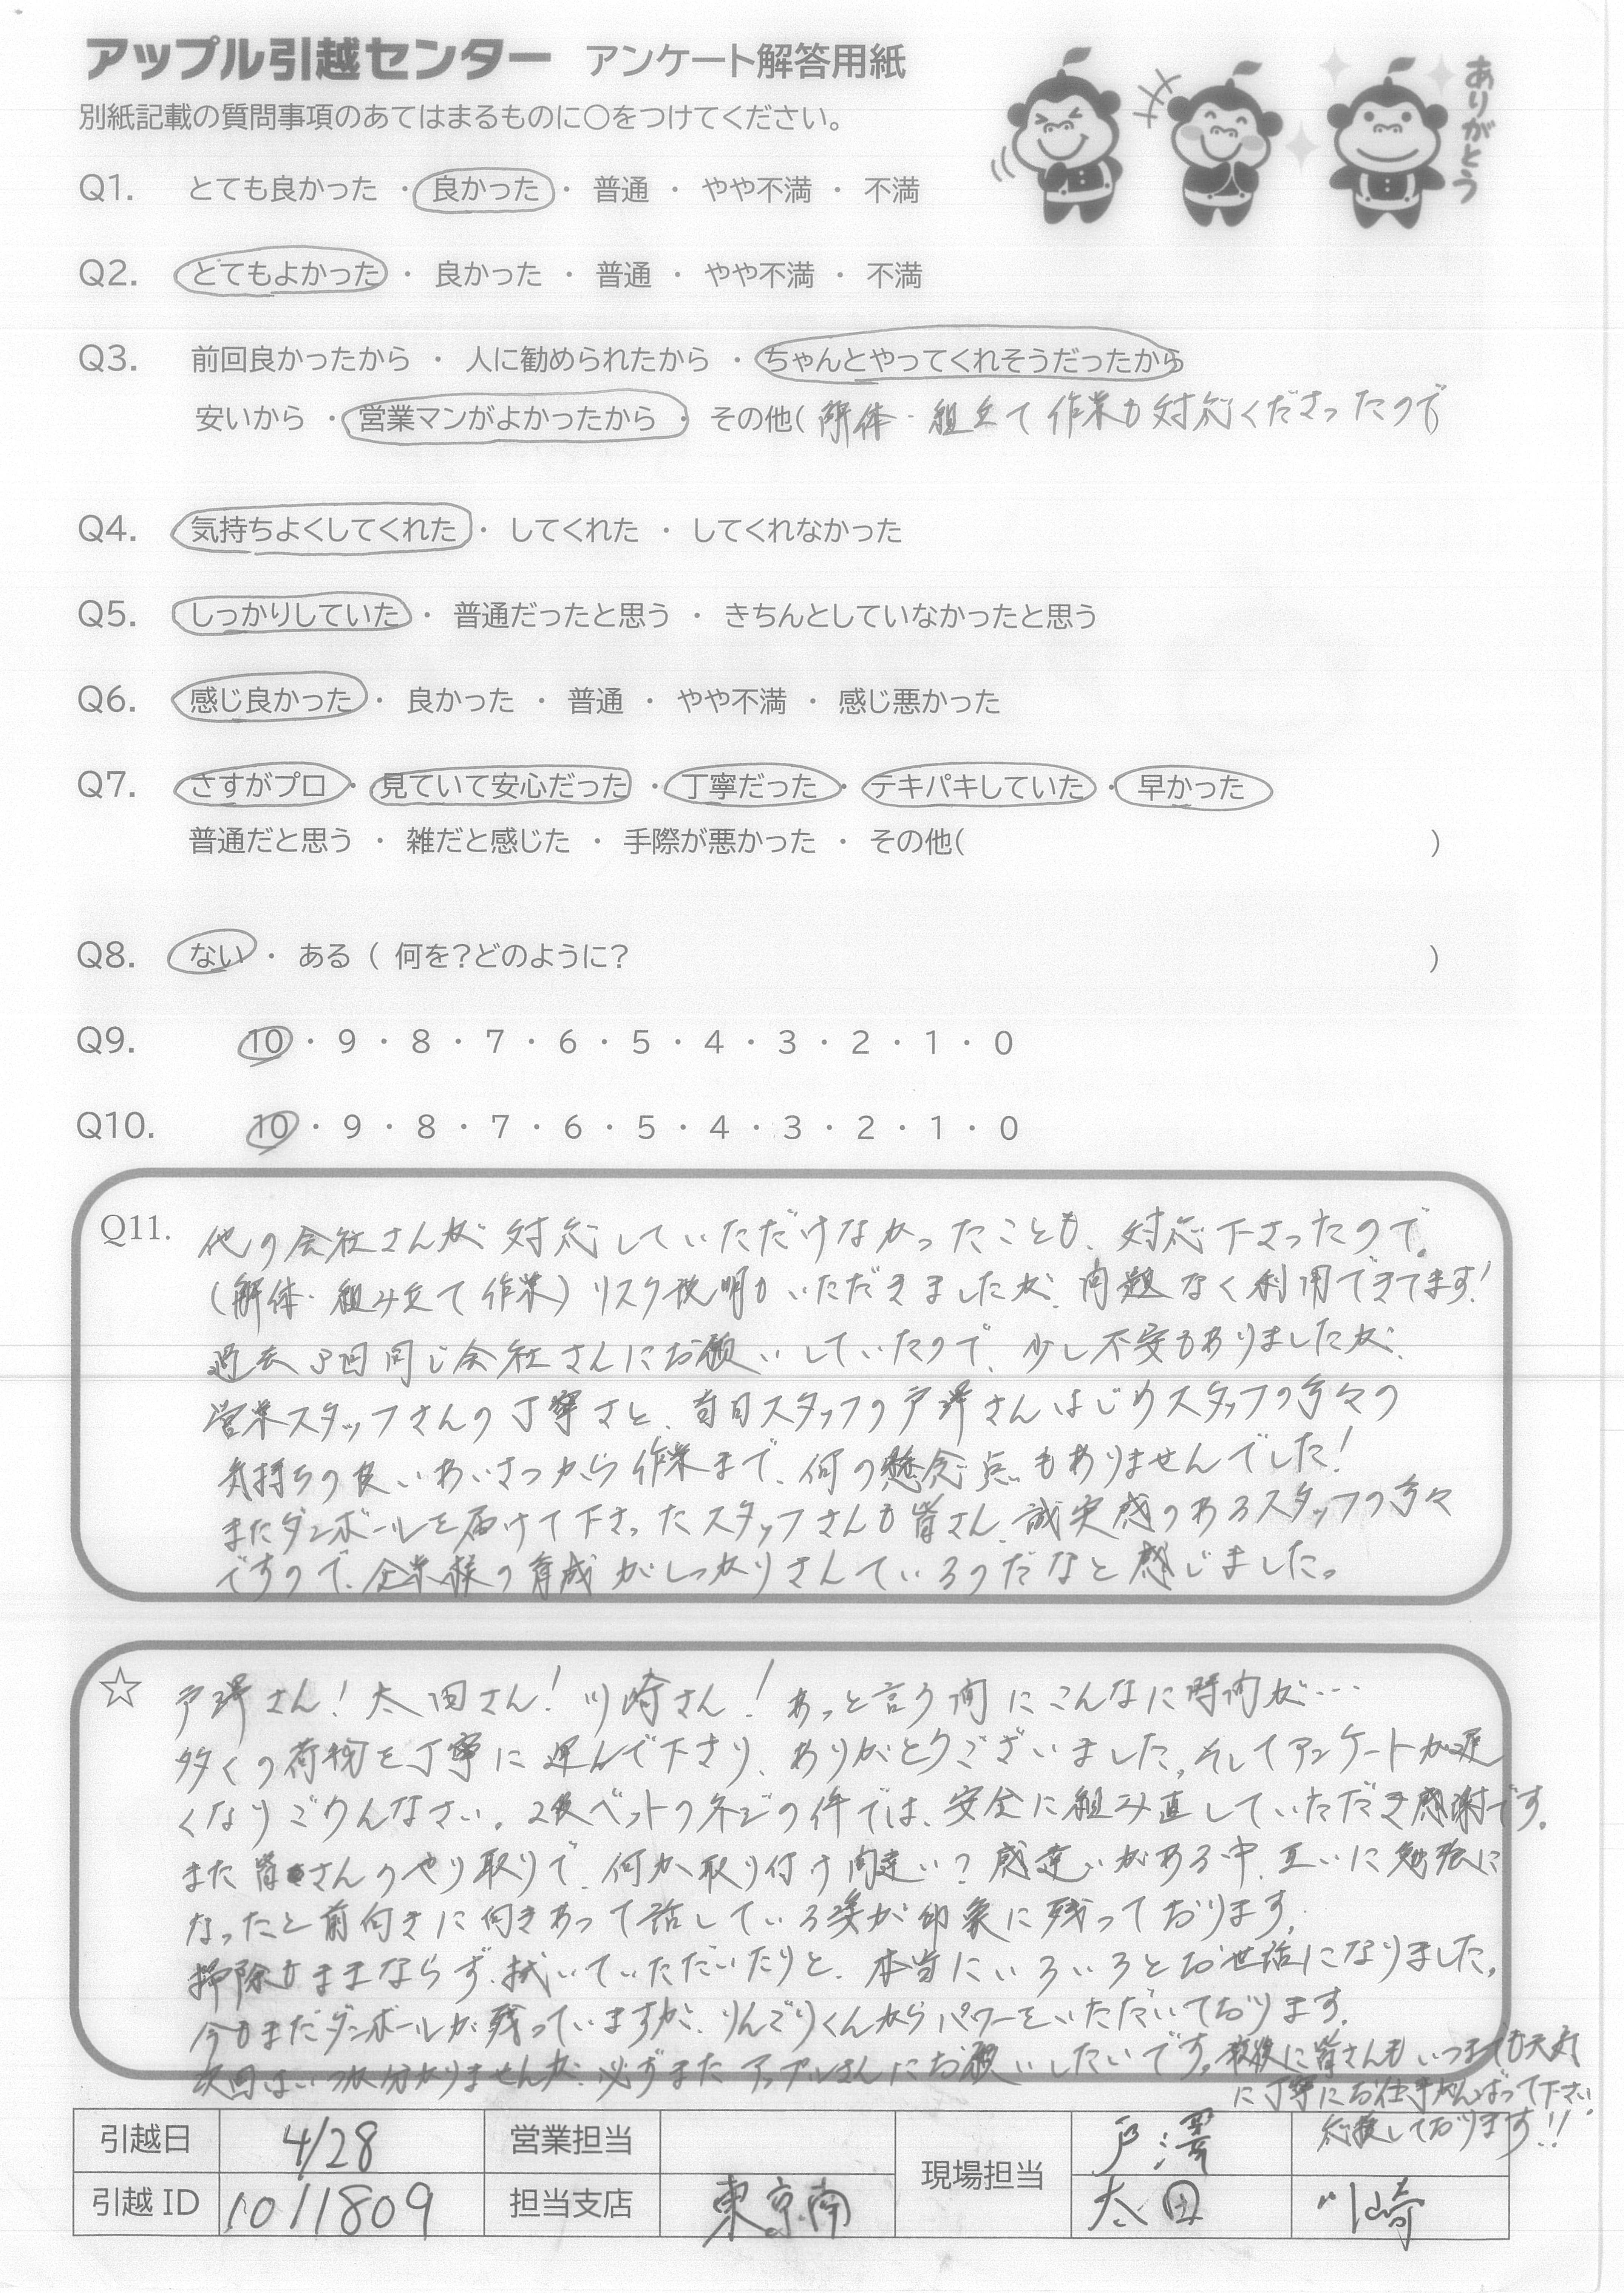 アップル引越センター アンケート解答用紙
別紙記載の質問事項のあてはまるものに○をつけてください。
ありがとう
Q1. とても良かった ・ 良かった ・ 普通 ・ やや不満 ・ 不満
Q2. とてもよかった ・ 良かった ・ 普通 ・ やや不満 ・ 不満
Q3. 前回良かったから ・ 人に勧められたから ・ ちゃんとやってくれそうだったから
安いから ・ 営業マンがよかったから ・ その他( 解体・組立て作業も対応くださったので )
Q4. 気持ちよくしてくれた ・ してくれた ・ してくれなかった
Q5. しっかりしていた ・ 普通だったと思う ・ きちんとしていなかったと思う
Q6. 感じ良かった ・ 良かった ・ 普通 ・ やや不満 ・ 感じ悪かった
Q7. さすがプロ ・ 見ていて安心だった ・ 丁寧だった ・ テキパキしていた ・ 早かった
普通だと思う ・ 雑だと感じた ・ 手際が悪かった ・ その他( )
Q8. ない ・ ある ( 何を?どのように? )
Q9. 10 ・ 9 ・ 8 ・ 7 ・ 6 ・ 5 ・ 4 ・ 3 ・ 2 ・ 1 ・ 0
Q10. 10 ・ 9 ・ 8 ・ 7 ・ 6 ・ 5 ・ 4 ・ 3 ・ 2 ・ 1 ・ 0
Q11. 他の会社さんが対応していただけなかったことも、対応下さったので。
(解体・組み立て作業)リスク説明もいただきましたが、問題なく利用できてます!
過去3回同じ会社さんにお願いしていたので、少し不安もありましたが、
営業スタッフさんの丁寧さと、当日スタッフの戸澤さんはじめスタッフの方々の
気持ちの良いあいさつから作業まで、何の懸念点もありませんでした!
またダンボールを届けて下さったスタッフさんも皆さん、誠実感のあるスタッフの方々
ですので、企業様の育成がしっかりさんているのだなと感じました。
☆ 戸澤さん!太田さん!川崎さん!あっと言う間にこんなに時間が…
多くの荷物を丁寧に運んで下さり、ありがとうございました。そしてアンケートが遅
くなりごめんなさい。2段ベットのネジの件では、安全に組み直していただき感謝です。
また皆さんのやり取りで、何か取り付け間違い?感違いがある中、互いに勉強に
なったと前向きに向きあって話している姿が印象に残っております。
掃除もままならず、拭いていただいたりと、本当にいろいろとお世話になりました。
今もまだダンボールが残っていますが、りんごりくんからパワーをいただいております。
次回はいつか分かりませんが、必ずまたアップルさんにお願いしたいです。最後に皆さんもいつまでも元気
に丁寧にお仕事がんばって下さい。
応援しております!!
引越日 4/28 営業担当 現場担当 戸澤
引越ID 1011809 担当支店 東京南 太田 川崎